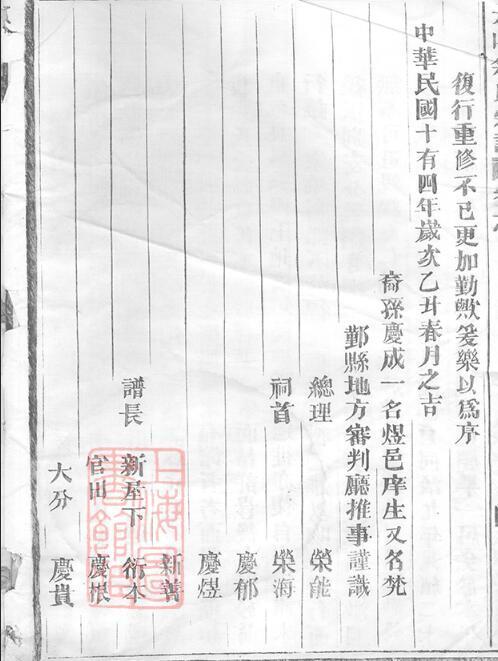 復行重修不已更加勤歟爰樂以爲序
中華民國十有四年歲次乙丑春月之吉
裔孫慶成一名煜邑庠生又名梵
鄞縣地方審判廳推事謹識
總理 榮能
祠首 榮海
慶郁
慶煜
新菁
譜長 新屋下 衍本
官田 慶根
大分 慶貴